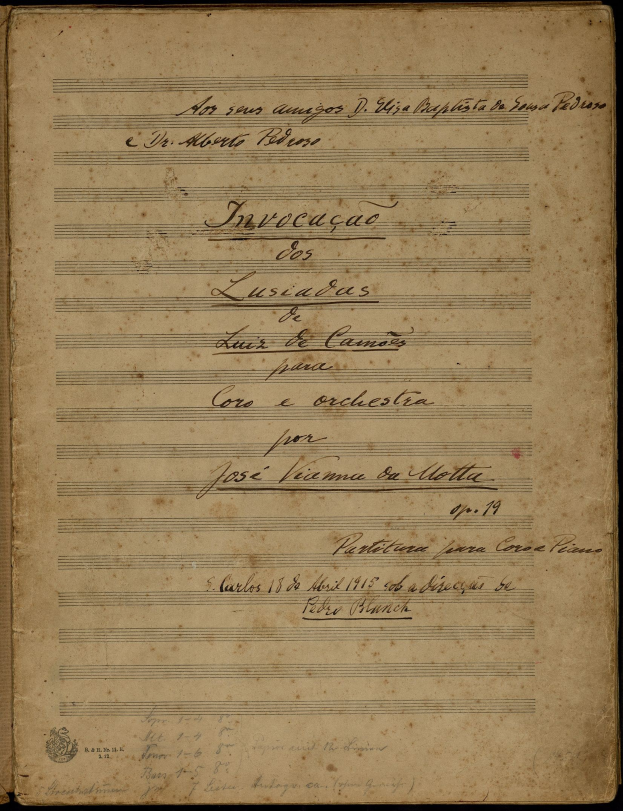 Aos seus amigos D. Elisa Baptista de Sousa Pedroso
e Dr. Alberto Pedroso
Invocação
dos
Lusiadas
de
Luiz de Camões
para
Coro e orchestra
por
José Vianna da Motta
op. 19
Partitura para Coro e Piano
S. Carlos 18 de Abril 1915 sob a direcção de
Pedro Blanch
B. & H. Nr. 14. E.
Sopr 1-4
Alt 1-4
Tenor 1-6
Bass 1-5